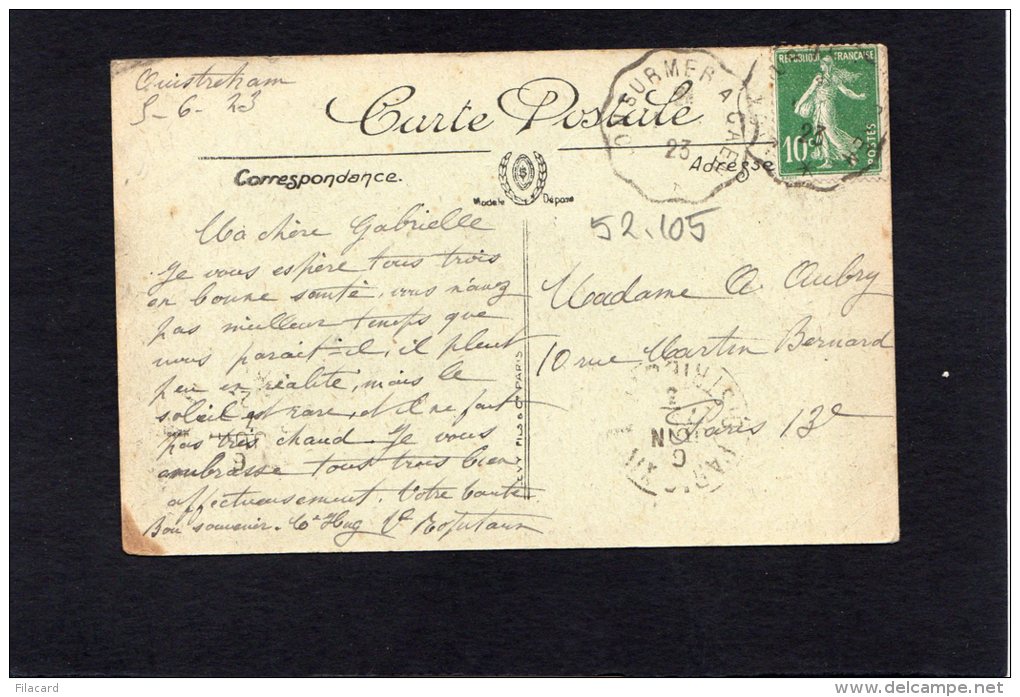 Ouistreham
5-6-23
Carte Postale
SURMER A CAEN
23
REPUBLIQUE FRANCAISE
10
POSTES
23
Correspondance.
Modèle Déposé
Adresse
52.105
Ma chère Gabrielle
Je vous espère tous trois
en bonne santé, vous n'avez
pas meilleur temps que
nous parait-il, il pleut
peu en réalité, mais le
soleil est rare, et il ne fait
pas très chaud. Je vous
embrasse tous trois bien
affectueusement. Votre tante
Bon souvenir.
LEVY FILS & Cie PARIS
Madame A. Aubry
10 rue Martin Bernard
Paris 13e
Filacard
delcampe.net